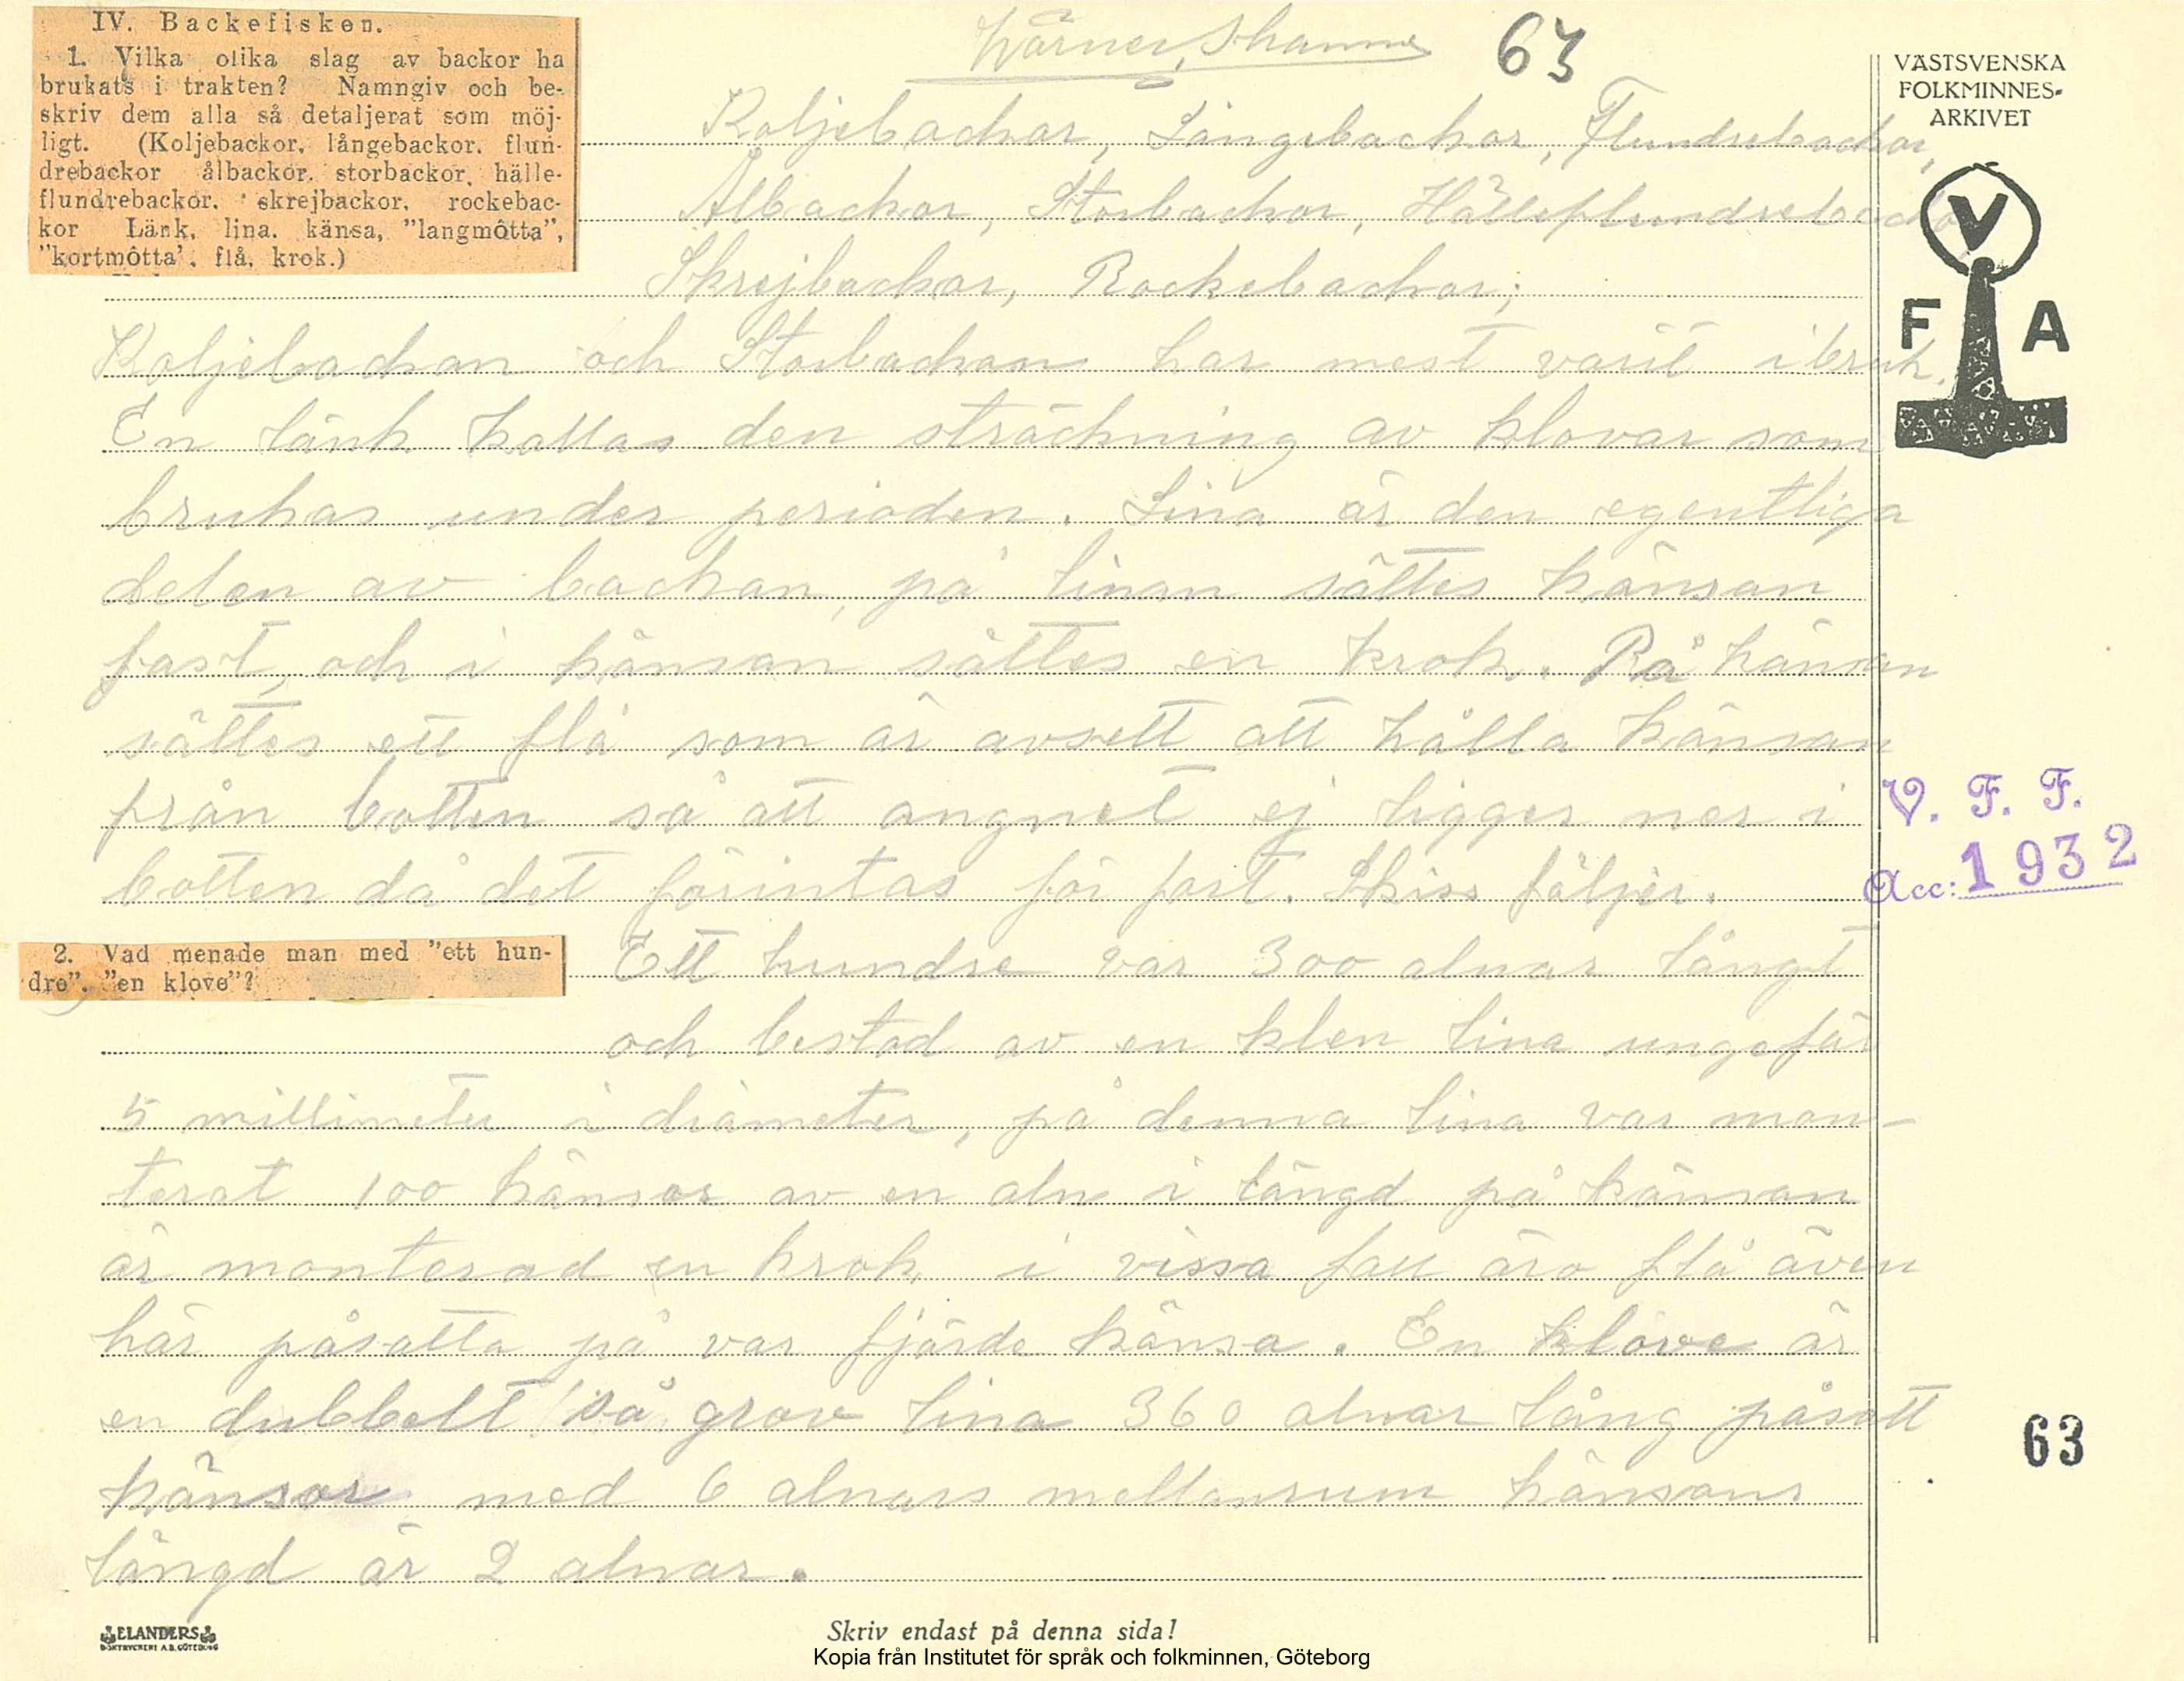 IV. Backefisken.
1. Vilka olika slag av backor ha
brukats i trakten? Namngiv och be-
skriv dem alla så detaljerat som möj-
ligt. (Koljebackor, långebackor, flun-
drebackor ålbackor, storbackor, hälle-
flundrebackor, skrejbackor, rockebac-
kor Länk, lina, känsa, "langmôtta",
"kortmôtta', flå, krok.)
63
VÄSTSVENSKA
FOLKMINNES-
ARKIVET
V
F A
Koljebackor, Långebackor, Flundrebackor,
Ålbackor, Storbackor, Hälleflundrebacko
Skrejbackor, Rockebackor;
Koljebackan och Storbackan har mest varit i bruk.
En länk kallas den sträckning av klovar som
brukas under perioden. Lina är den egentliga
delen av backan, på linan sättes känsan
fast, och i känsan sättes en krok. På känsan
sättes ett flå som är avsett att hålla känsan
från botten så att angnet ej ligger ner i
botten då det förintas för fort. Skiss följer.
V. F. F.
Acc: 1932
2. Vad menade man med "ett hun-
dre", "en klove"?
Ett hundre var 300 alnar långt
och bestod av en klen lina ungefär
5 millimeter i diameter, på denna lina var mon-
terat 100 känsor av en aln i längd på känsan
är monterad en krok i vissa fall äro flå även
här påsatta på var fjärde känsa. En klove är
en dubbelt så grov lina 360 alnar lång påsatt
känsor med 6 alnars mellanrum känsans
längd är 2 alnar.
63
ELANDERS
BOKTRYCKERI A.B. GÖTEBORG
Skriv endast på denna sida!
Kopia från Institutet för språk och folkminnen, Göteborg